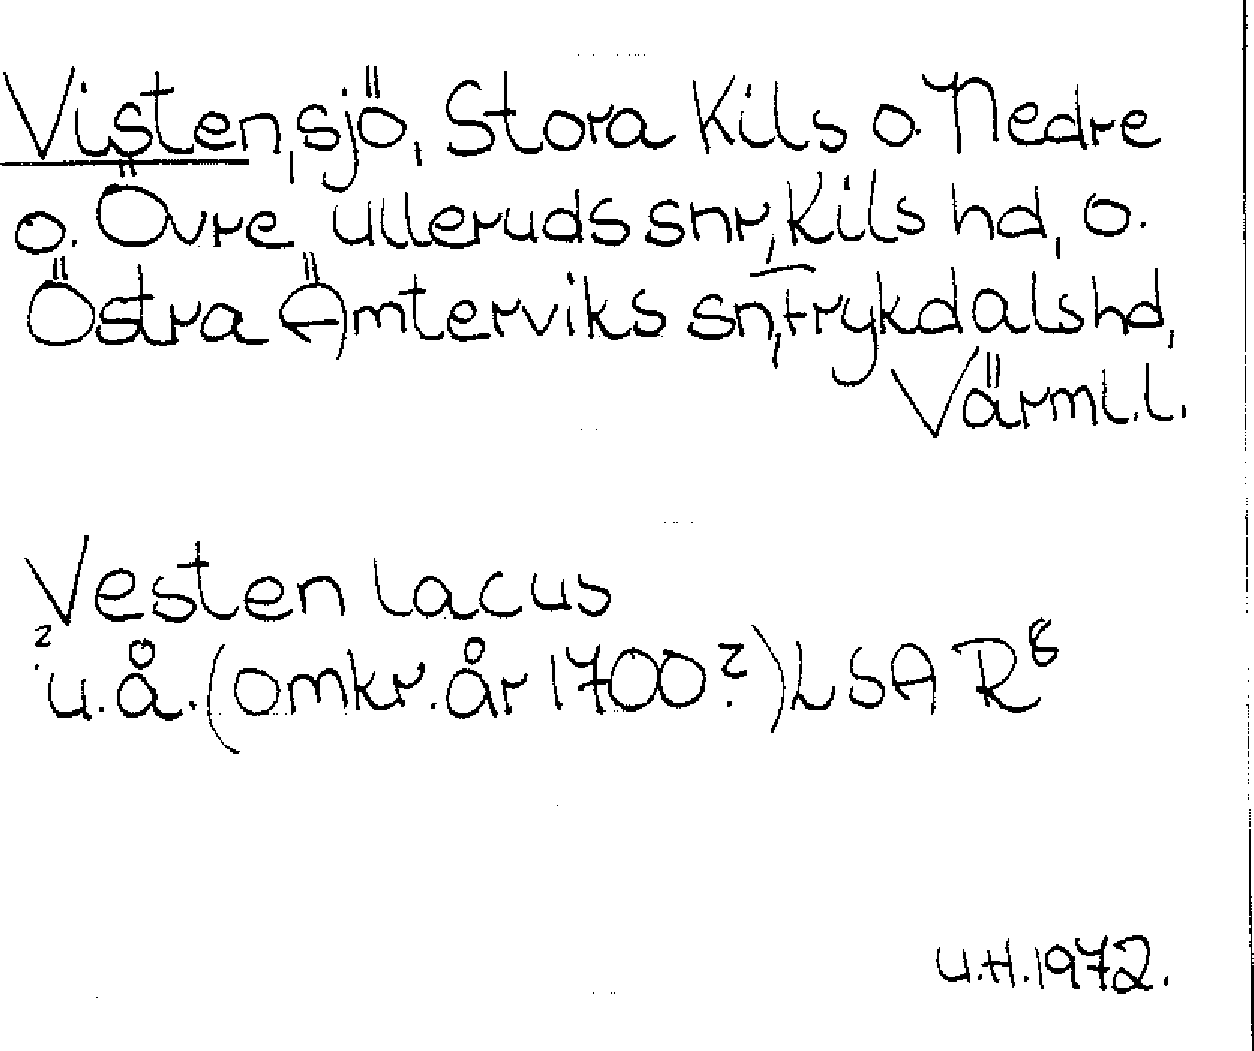 Visten, sjö, Stora Kils o. Nedre
o. Övre Ulleruds snr, Kils hd, o.
Östra Ämterviks sn, Frykdals hd,
Värml.l.
Vesten lacus
? u.å. (omkr. år 1700?) LSA R8
U.H. 1972.